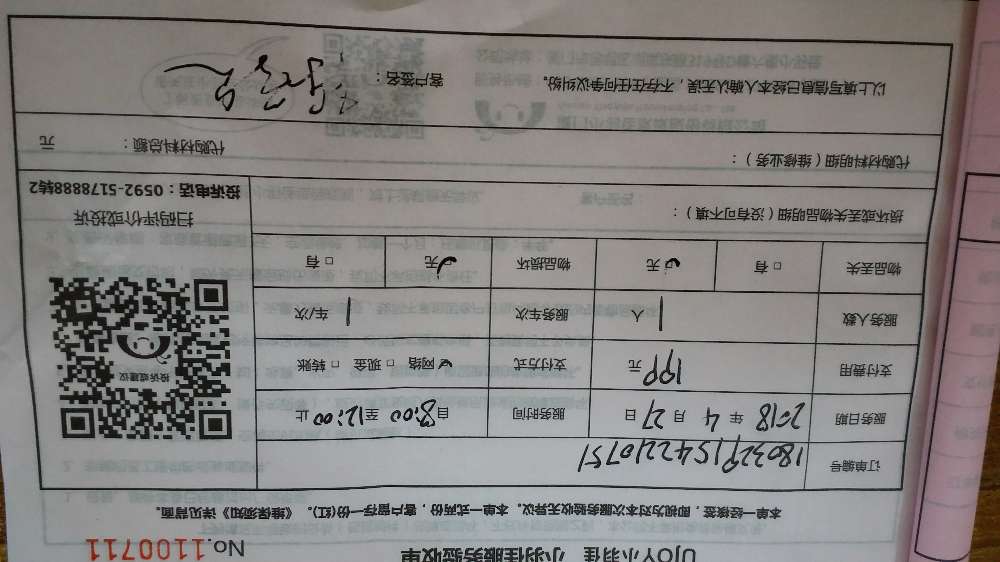 UJOY小羽佳 小羽佳服务验收单 No.1100711
本单一经核签,即视为对本次服务验收无异议。本单一式两份,客户留存一份(红)。《维保须知》详见背面。
订单编号 1803291542210751
服务日期 2018 年 4 月 21 日 服务时间 自 8:00 至 12:00 止
支付费用 199 元 支付方式 网络 □ 现金 □ 转账
服务人数 1 人 服务车次 1 车/次
物品丢失 □ 有 无 物品损坏 无 □ 有
损坏或丢失物品明细(没有可不填):
投诉或建议
扫码评价或投诉
投诉电话:0592-5178888转2
代购材料明细(维修业务): 代购材料总额: 元
以上填写信息已经本人确认无误,不存在任何争议纠纷。 客户签名: